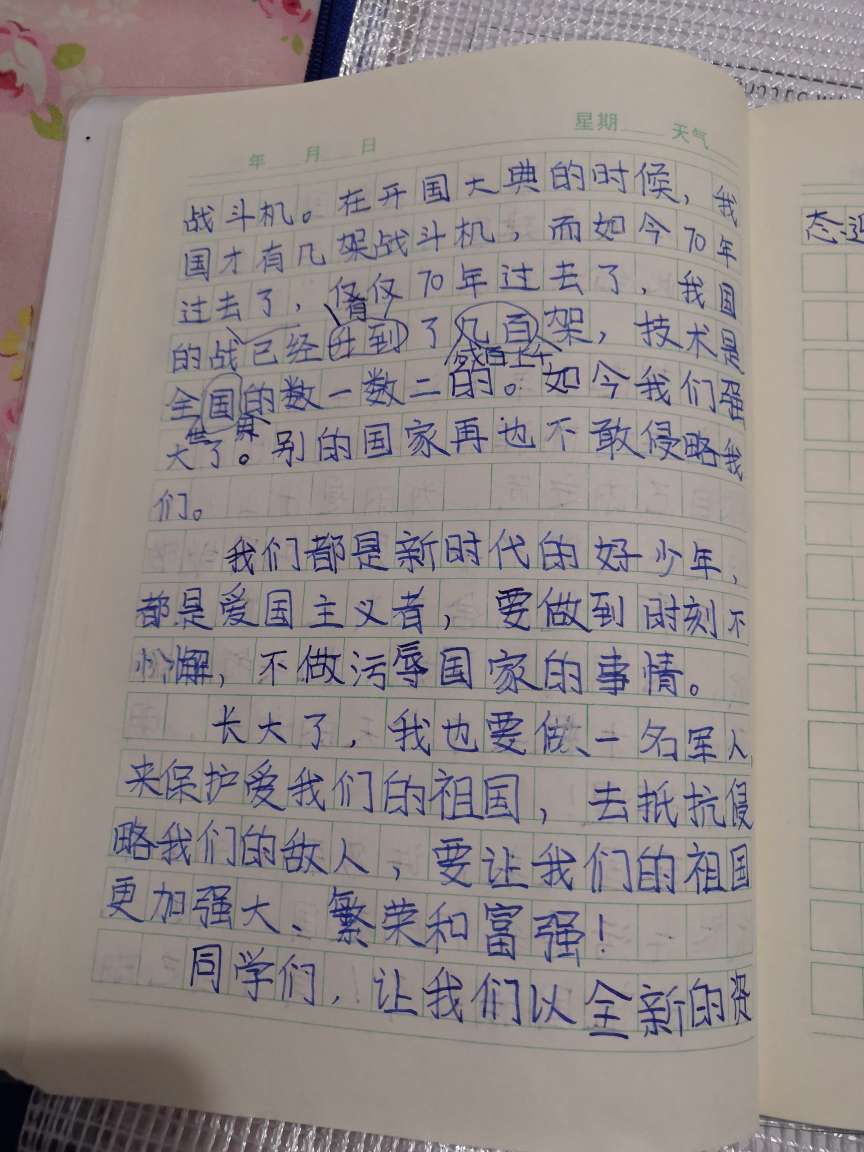 年 月 日 星期 天气
战斗机。在开国大典的时候，我
国才有几架战斗机，而如今70年
过去了，仅仅70年过去了，我国
有
的战已经 到了几百架，技术是
成百上千
全国的数一数二的。如今我们强
世 界
大了。别的国家再也不敢侵略我
们。
我们都是新时代的好少年，
都是爱国主义者，要做到时刻不
懈，不做污辱国家的事情。
长大了，我也要做一名军人
来保护爱我们的祖国，去抵抗侵
略我们的敌人，要让我们的祖国
更加强大、繁荣和富强！
同学们，让我们以全新的姿
态迎